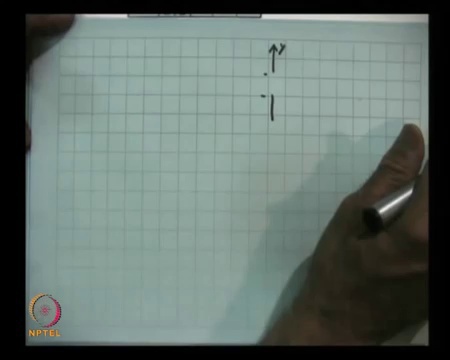 y
NPTEL